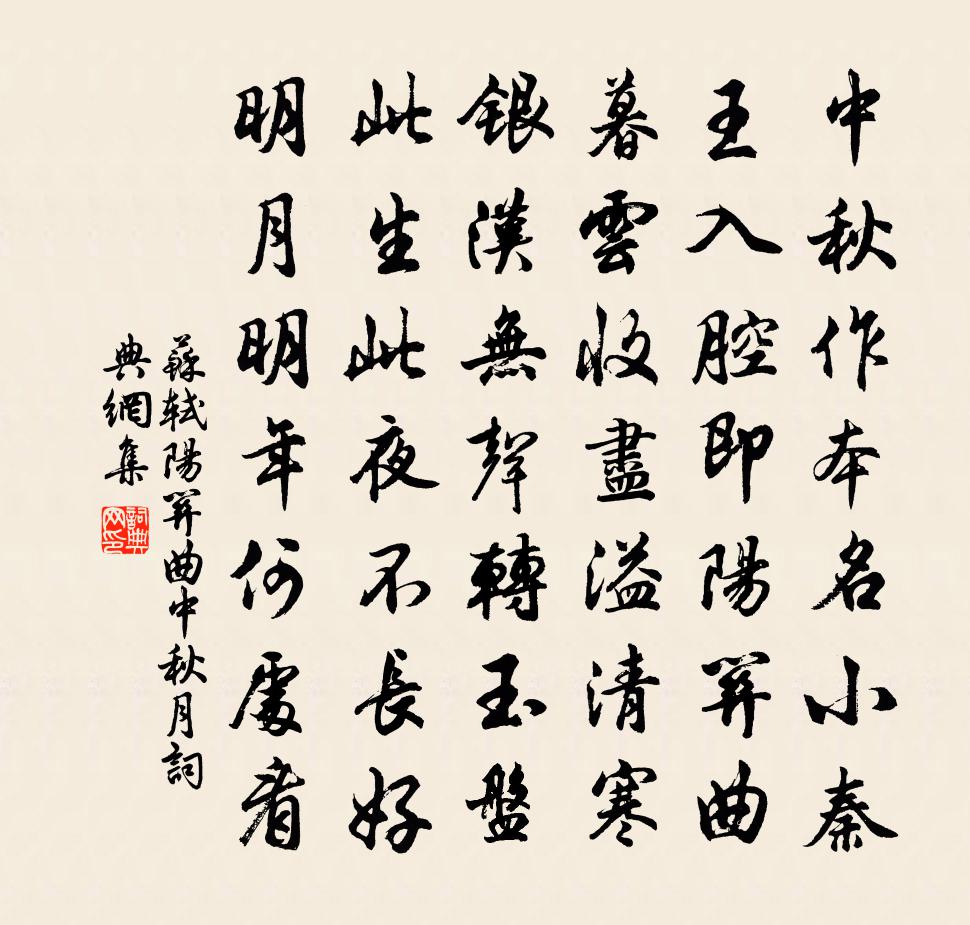 中秋作本名小秦
王入腔即陽関曲
暮雲收盡溢清寒
銀漢無聲轉玉盤
此生此夜不長好
明月明年何處看
蘇軾陽関曲中秋月詞
典網集
詞典网印